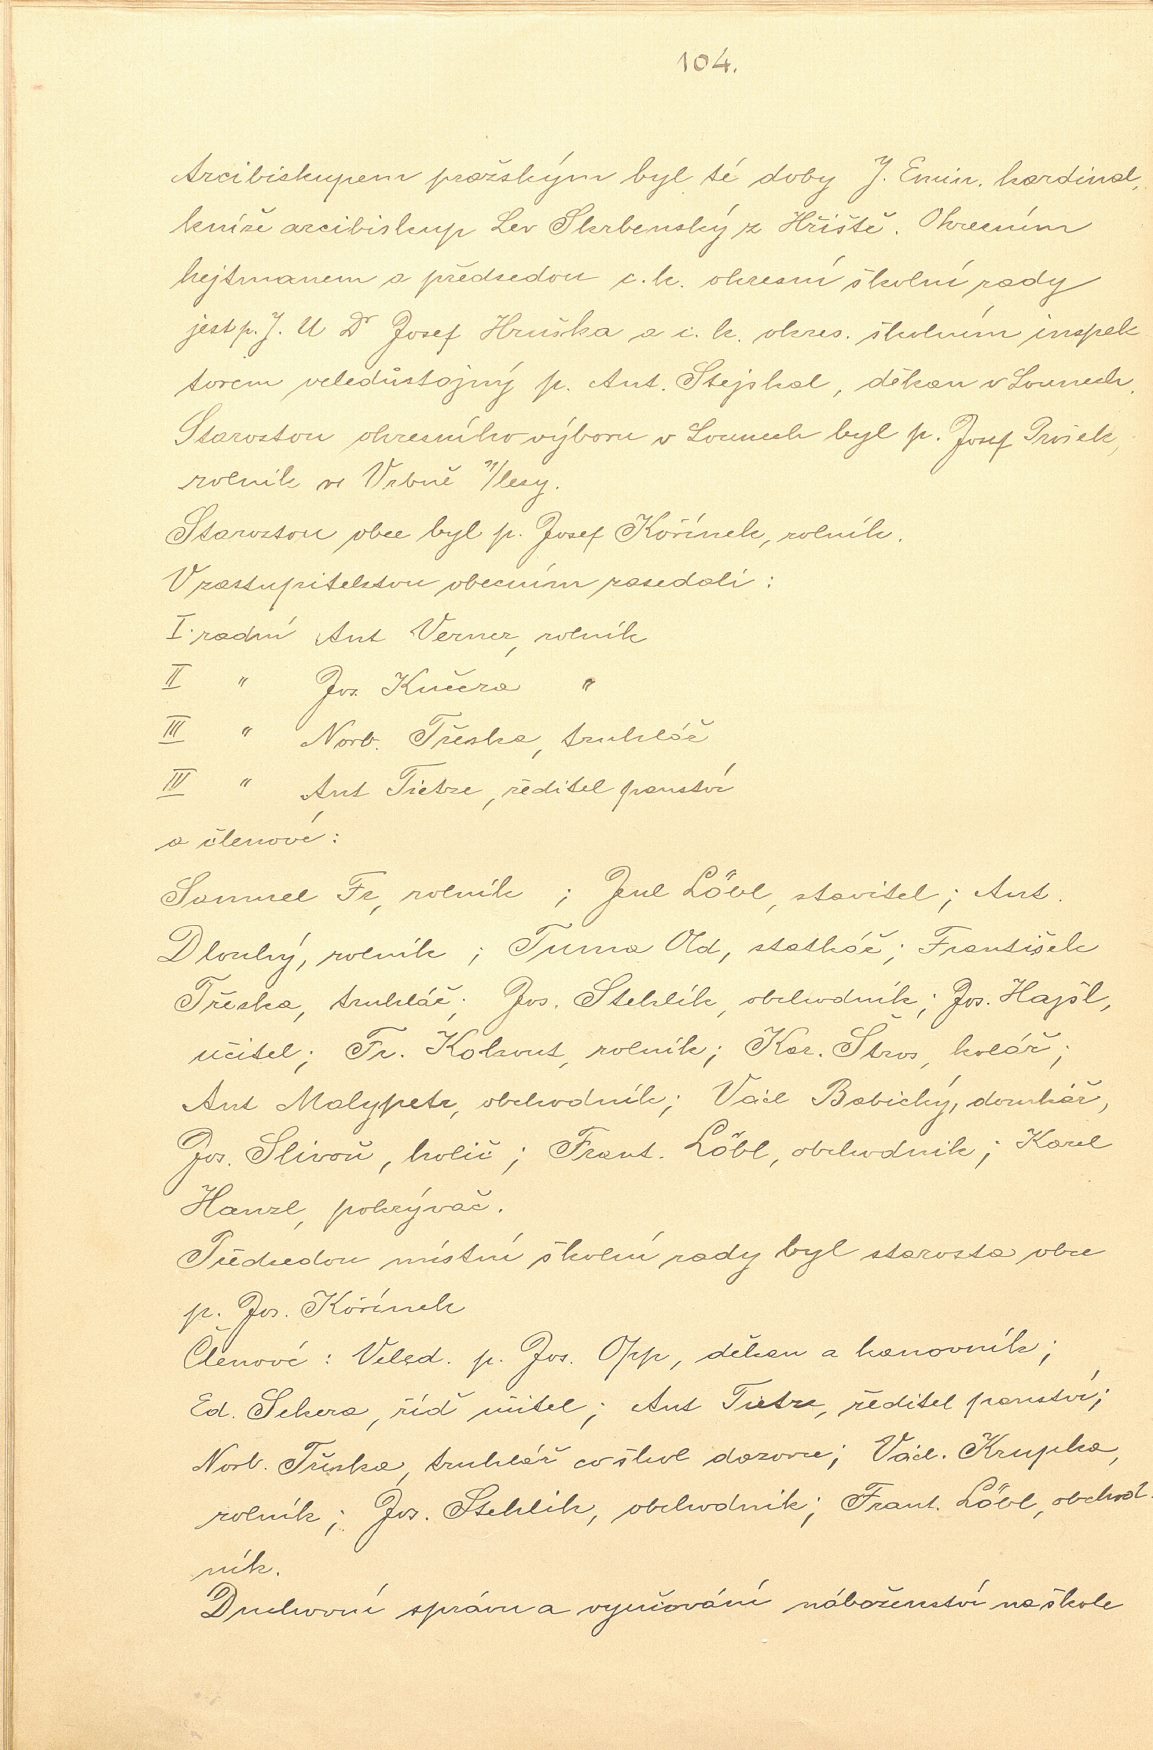 104.
Arcibiskupem pražským byl té doby J. Emin. kardinal,
kníže arcibiskup Lev Skrbenský z Hříště. Okresním
hejtmanem a předsedou c. k. okresní školní rady
jest p. J. U Dr Josef Hruška a c. k. okres. školním inspek
torem veledůstojný p. Ant. Stejskal, děkan v Lounech.
Starostou okresního výboru v Lounech byl p. Josef Prošek,
rolník ve Vrbně n/lesy.
Starostou obce byl p. Josef Kořínek, rolník.
V zastupitelstvu obecním zasedali:
I. radní Ant Verner, rolník
II " Jos. Kučera "
III " Norb. Třeska, truhlář
IV " Ant Tietze, ředitel panství
a členové:
Samuel Fr, rolník ; Jul Löbl, stavitel ; Ant.
Dlouhý, rolník ; Tuma Old, statkář ; František
Třeska, truhlář ; Jos. Stehlík, obchodník ; Jos. Hajšl,
učitel ; Fr. Kohout, rolník ; Kar. Štros, kolář ;
Ant Malypetr, obchodník ; Václ Babický, domkář,
Jos. Slivoň, holič ; Frant. Löbl, obchodník ; Karel
Hanzl, pokrývač.
Předsedou místní školní rady byl starosta obce
p. Jos. Kořínek
Členové : Veled. p. Jos. Opp, děkan a kanovník ;
Ed. Sekera, říd učitel ; Ant Tietze, ředitel panství ;
Norb. Třeska, truhlář co škol dozorce ; Václ. Krupka,
rolník ; Jos. Stehlík, obchodník ; Frant. Löbl, obchod
ník.
Duchovní správu a vyučování náboženství na škole